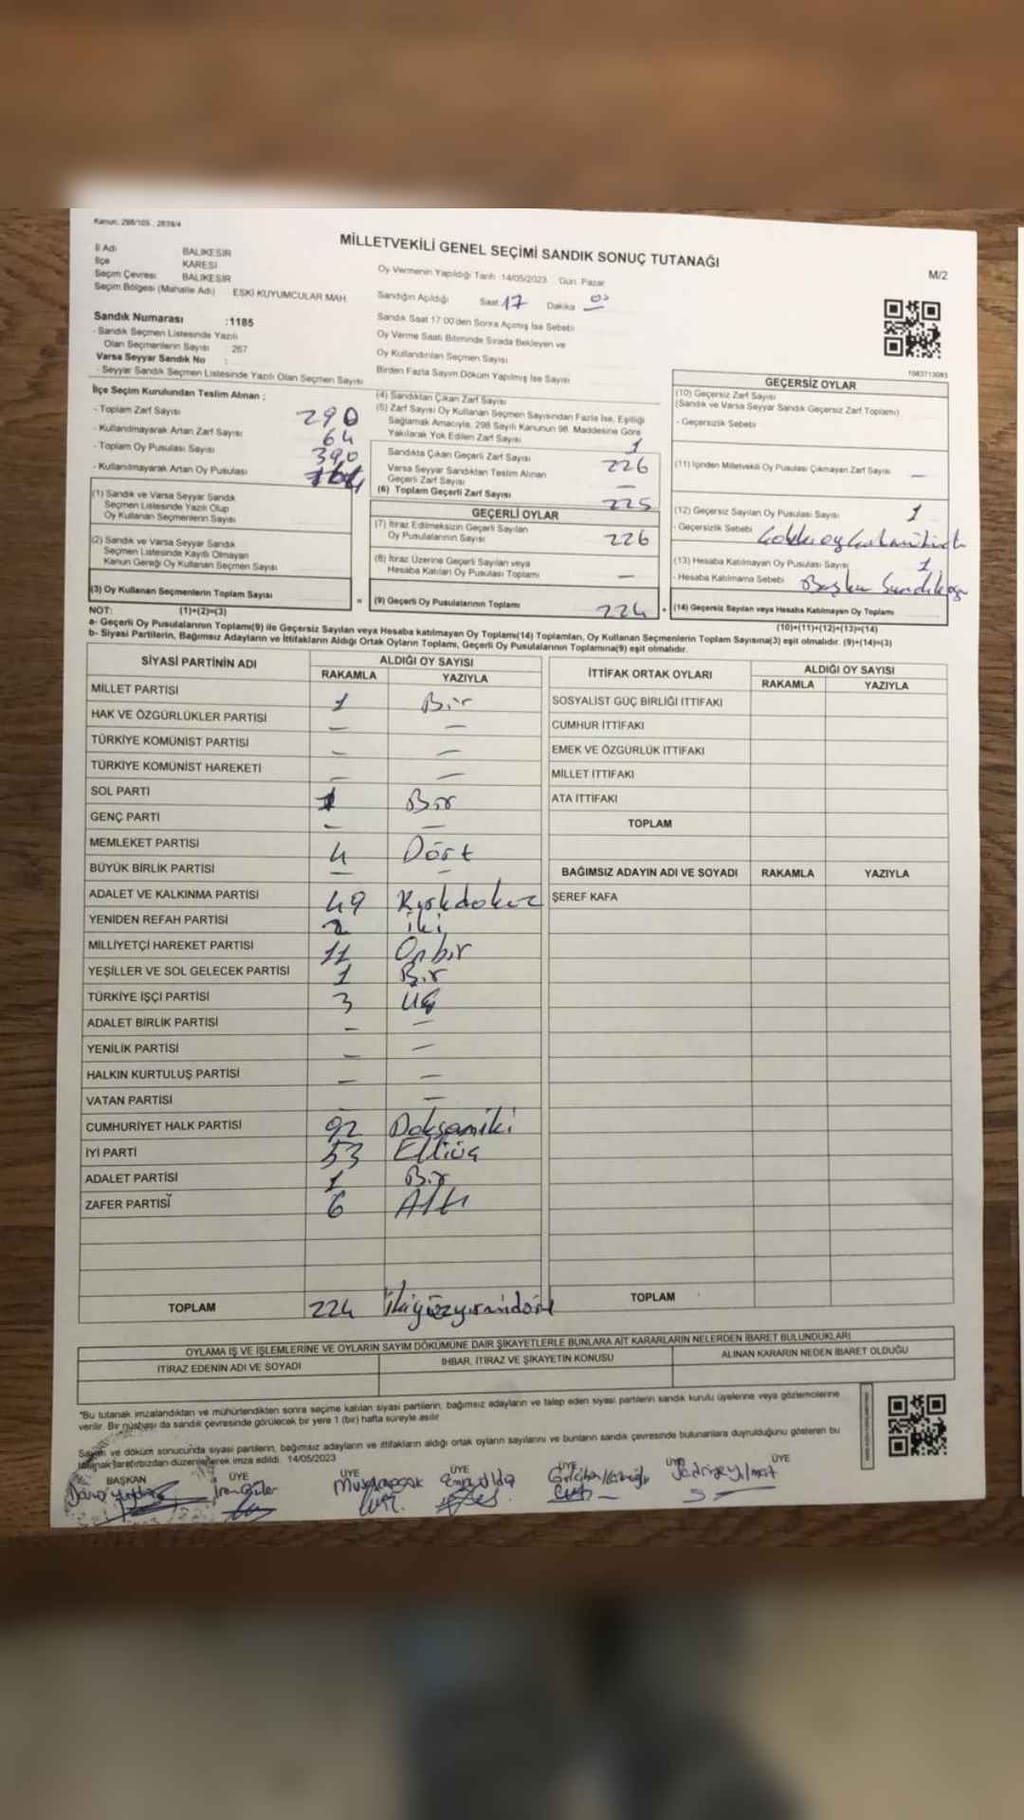 Kanun: 298/105 , 2839/4
MİLLETVEKİLİ GENEL SEÇİMİ SANDIK SONUÇ TUTANAĞI
M/2
İl Adı BALIKESİR
İlçe KARESİ
Seçim Çevresi BALIKESİR
Seçim Bölgesi (Mahalle Adı) ESKİ KUYUMCULAR MAH.
Oy Vermenin Yapıldığı Tarih :14/05/2023 Gün: Pazar
Sandığın Açıldığı Saat 17 Dakika 00
Sandık Saat 17:00'den Sonra Açılmış İse Sebebi
Oy Verme Saati Bitiminde Sırada Bekleyen ve
Oy Kullandırılan Seçmen Sayısı
Birden Fazla Sayım Döküm Yapılmış İse Sayısı
Sandık Numarası :1185
- Sandık Seçmen Listesinde Yazılı
Olan Seçmenlerin Sayısı : 267
Varsa Seyyar Sandık No :
- Seyyar Sandık Seçmen Listesinde Yazılı Olan Seçmen Sayısı
İlçe Seçim Kurulundan Teslim Alınan :
- Toplam Zarf Sayısı 290
- Kullanılmayarak Artan Zarf Sayısı 64
- Toplam Oy Pusulası Sayısı 390
- Kullanılmayarak Artan Oy Pusulası
(1) Sandık ve Varsa Seyyar Sandık
Seçmen Listesinde Yazılı Olup
Oy Kullanan Seçmenlerin Sayısı
(2) Sandık ve Varsa Seyyar Sandık
Seçmen Listesinde Kayıtlı Olmayan
Kanun Gereği Oy Kullanan Seçmen Sayısı
(3) Oy Kullanan Seçmenlerin Toplam Sayısı
(1)+(2)=(3)
(4) Sandıktan Çıkan Zarf Sayısı
(5) Zarf Sayısı Oy Kullanan Seçmen Sayısından Fazla İse, Eşitliği
Sağlamak Amacıyla, 298 Sayılı Kanunun 98. Maddesine Göre
Yakılarak Yok Edilen Zarf Sayısı 1
Sandıkta Çıkan Geçerli Zarf Sayısı 226
Varsa Seyyar Sandıktan Teslim Alınan
Geçerli Zarf Sayısı —
(6) Toplam Geçerli Zarf Sayısı 225
GEÇERLİ OYLAR
(7) İtiraz Edilmeksizin Geçerli Sayılan
Oy Pusulalarının Sayısı 226
(8) İtiraz Üzerine Geçerli Sayılan veya
Hesaba Katılan Oy Pusulası Toplamı —
(9) Geçerli Oy Pusulalarının Toplamı 224
7083713085
GEÇERSİZ OYLAR
(10) Geçersiz Zarf Sayısı
(Sandık ve Varsa Seyyar Sandık Geçersiz Zarf Toplamı)
- Geçersizlik Sebebi
(11) İçinden Milletvekili Oy Pusulası Çıkmayan Zarf Sayısı —
(12) Geçersiz Sayılan Oy Pusulası Sayısı 1
- Geçersizlik Sebebi
(13) Hesaba Katılmayan Oy Pusulası Sayısı 1
- Hesaba Katılmama Sebebi Başka
(14) Geçersiz Sayılan veya Hesaba Katılmayan Oy Toplamı
(10)+(11)+(12)+(13)=(14)
NOT:
a- Geçerli Oy Pusulalarının Toplamı(9) ile Geçersiz Sayılan veya Hesaba katılmayan Oy Toplamı(14) Toplamları, Oy Kullanan Seçmenlerin Toplam Sayısına(3) eşit olmalıdır. (9)+(14)=(3)
b- Siyasi Partilerin, Bağımsız Adayların ve İttifakların Aldığı Ortak Oyların Toplamı, Geçerli Oy Pusulalarının Toplamına(9) eşit olmalıdır.
SİYASİ PARTİNİN ADI ALDIĞI OY SAYISI
RAKAMLA YAZIYLA
MİLLET PARTİSİ 1 Bir
HAK VE ÖZGÜRLÜKLER PARTİSİ — —
TÜRKİYE KOMÜNİST PARTİSİ — —
TÜRKİYE KOMÜNİST HAREKETİ — —
SOL PARTİ 1 Bir
GENÇ PARTİ — —
MEMLEKET PARTİSİ 4 Dört
BÜYÜK BİRLİK PARTİSİ — —
ADALET VE KALKINMA PARTİSİ 49 Kırkdokuz
YENİDEN REFAH PARTİSİ 2 iki
MİLLİYETÇİ HAREKET PARTİSİ 11 Onbir
YEŞİLLER VE SOL GELECEK PARTİSİ 1 Bir
TÜRKİYE İŞÇİ PARTİSİ 3 Üç
ADALET BİRLİK PARTİSİ — —
YENİLİK PARTİSİ — —
HALKIN KURTULUŞ PARTİSİ — —
VATAN PARTİSİ — —
CUMHURİYET HALK PARTİSİ 92 Doksaniki
İYİ PARTİ 53 Elliüç
ADALET PARTİSİ 1 Bir
ZAFER PARTİSİ 6 Altı
TOPLAM 224 ikiyüzyirmidört
İTTİFAK ORTAK OYLARI ALDIĞI OY SAYISI
RAKAMLA YAZIYLA
SOSYALİST GÜÇ BİRLİĞİ İTTİFAKI
CUMHUR İTTİFAKI
EMEK VE ÖZGÜRLÜK İTTİFAKI
MİLLET İTTİFAKI
ATA İTTİFAKI
TOPLAM
BAĞIMSIZ ADAYIN ADI VE SOYADI RAKAMLA YAZIYLA
ŞEREF KAFA
TOPLAM
OYLAMA İŞ VE İŞLEMLERİNE VE OYLARIN SAYIM DÖKÜMÜNE DAİR ŞİKAYETLERLE BUNLARA AİT KARARLARIN NELERDEN İBARET BULUNDUKLARI
İTİRAZ EDENİN ADI VE SOYADI İHBAR, İTİRAZ VE ŞİKAYETİN KONUSU ALINAN KARARIN NEDEN İBARET OLDUĞU
*Bu tutanak imzalandıktan ve mühürlendikten sonra seçime katılan siyasi partilerin, bağımsız adayların ve talep eden siyasi partilerin sandık kurulu üyelerine veya gözlemcilerine
verilir. Bir nüshası da sandık çevresinde görülecek bir yere 1 (bir) hafta süreyle asılır
Sayım ve döküm sonucunda siyasi partilerin, bağımsız adayların ve ittifakların aldığı ortak oyların sayılarını ve bunların sandık çevresinde bulunanlara duyrulduğunu gösteren bu
tutanak tarafımızdan düzenlenerek imza edildi. 14/05/2023
BAŞKAN ÜYE ÜYE ÜYE ÜYE ÜYE ÜYE